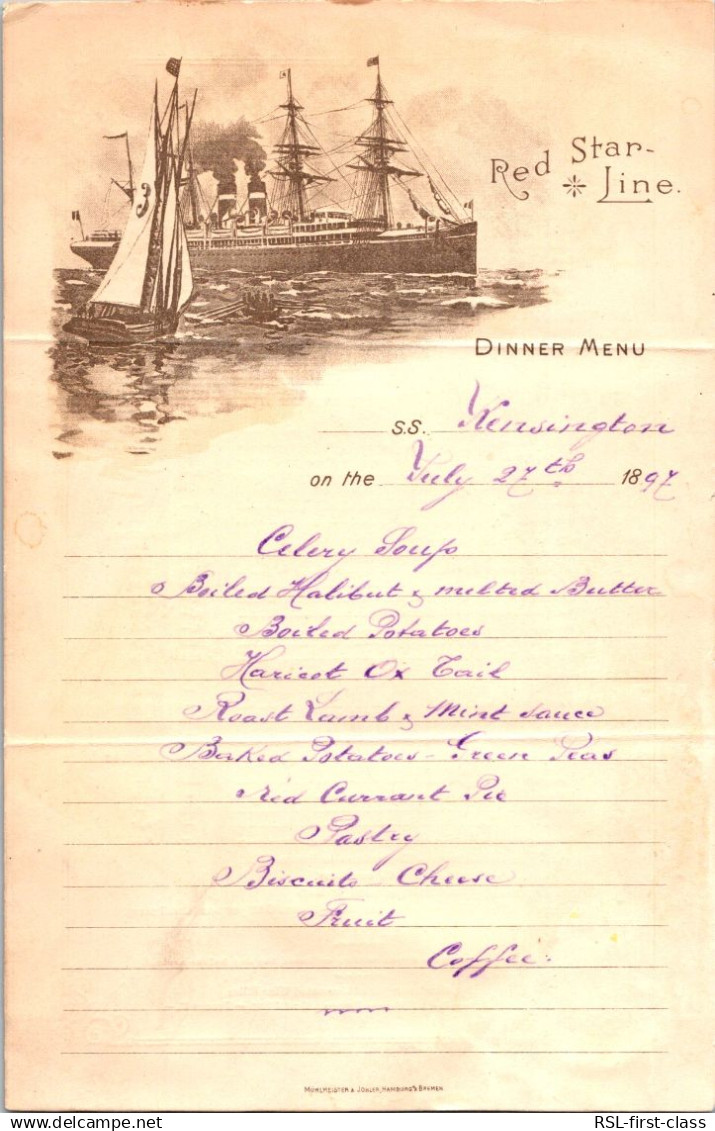 3
Red Star-
Line.
DINNER MENU
S.S. Kensington
on the July 27th 1897
Celery Soup
Boiled Halibut & melted Butter
Boiled Potatoes
Haricot Ox Tail
Roast Lamb & Mint sauce
Baked Potatoes - Green Peas
Red Currant Pie
Pastry
Biscuits Cheese
Fruit
Coffee.
MÜHLMEISTER & JOHLER, HAMBURG & BREMEN
www.delcampe.net
RSL-first-class